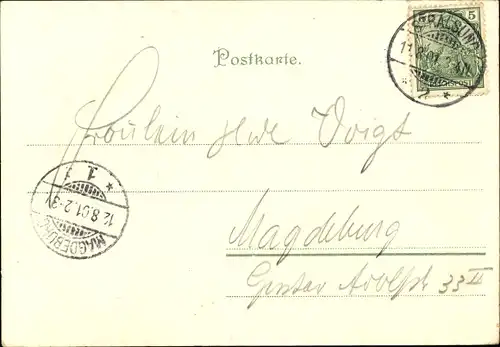 5
STRALSUND
11.8.01.
2
Postkarte.
Fräulein Voigt
MAGDEBURG
12.8.01.2-3
1
Magdeburg
Gustav Adolfstr 33 II